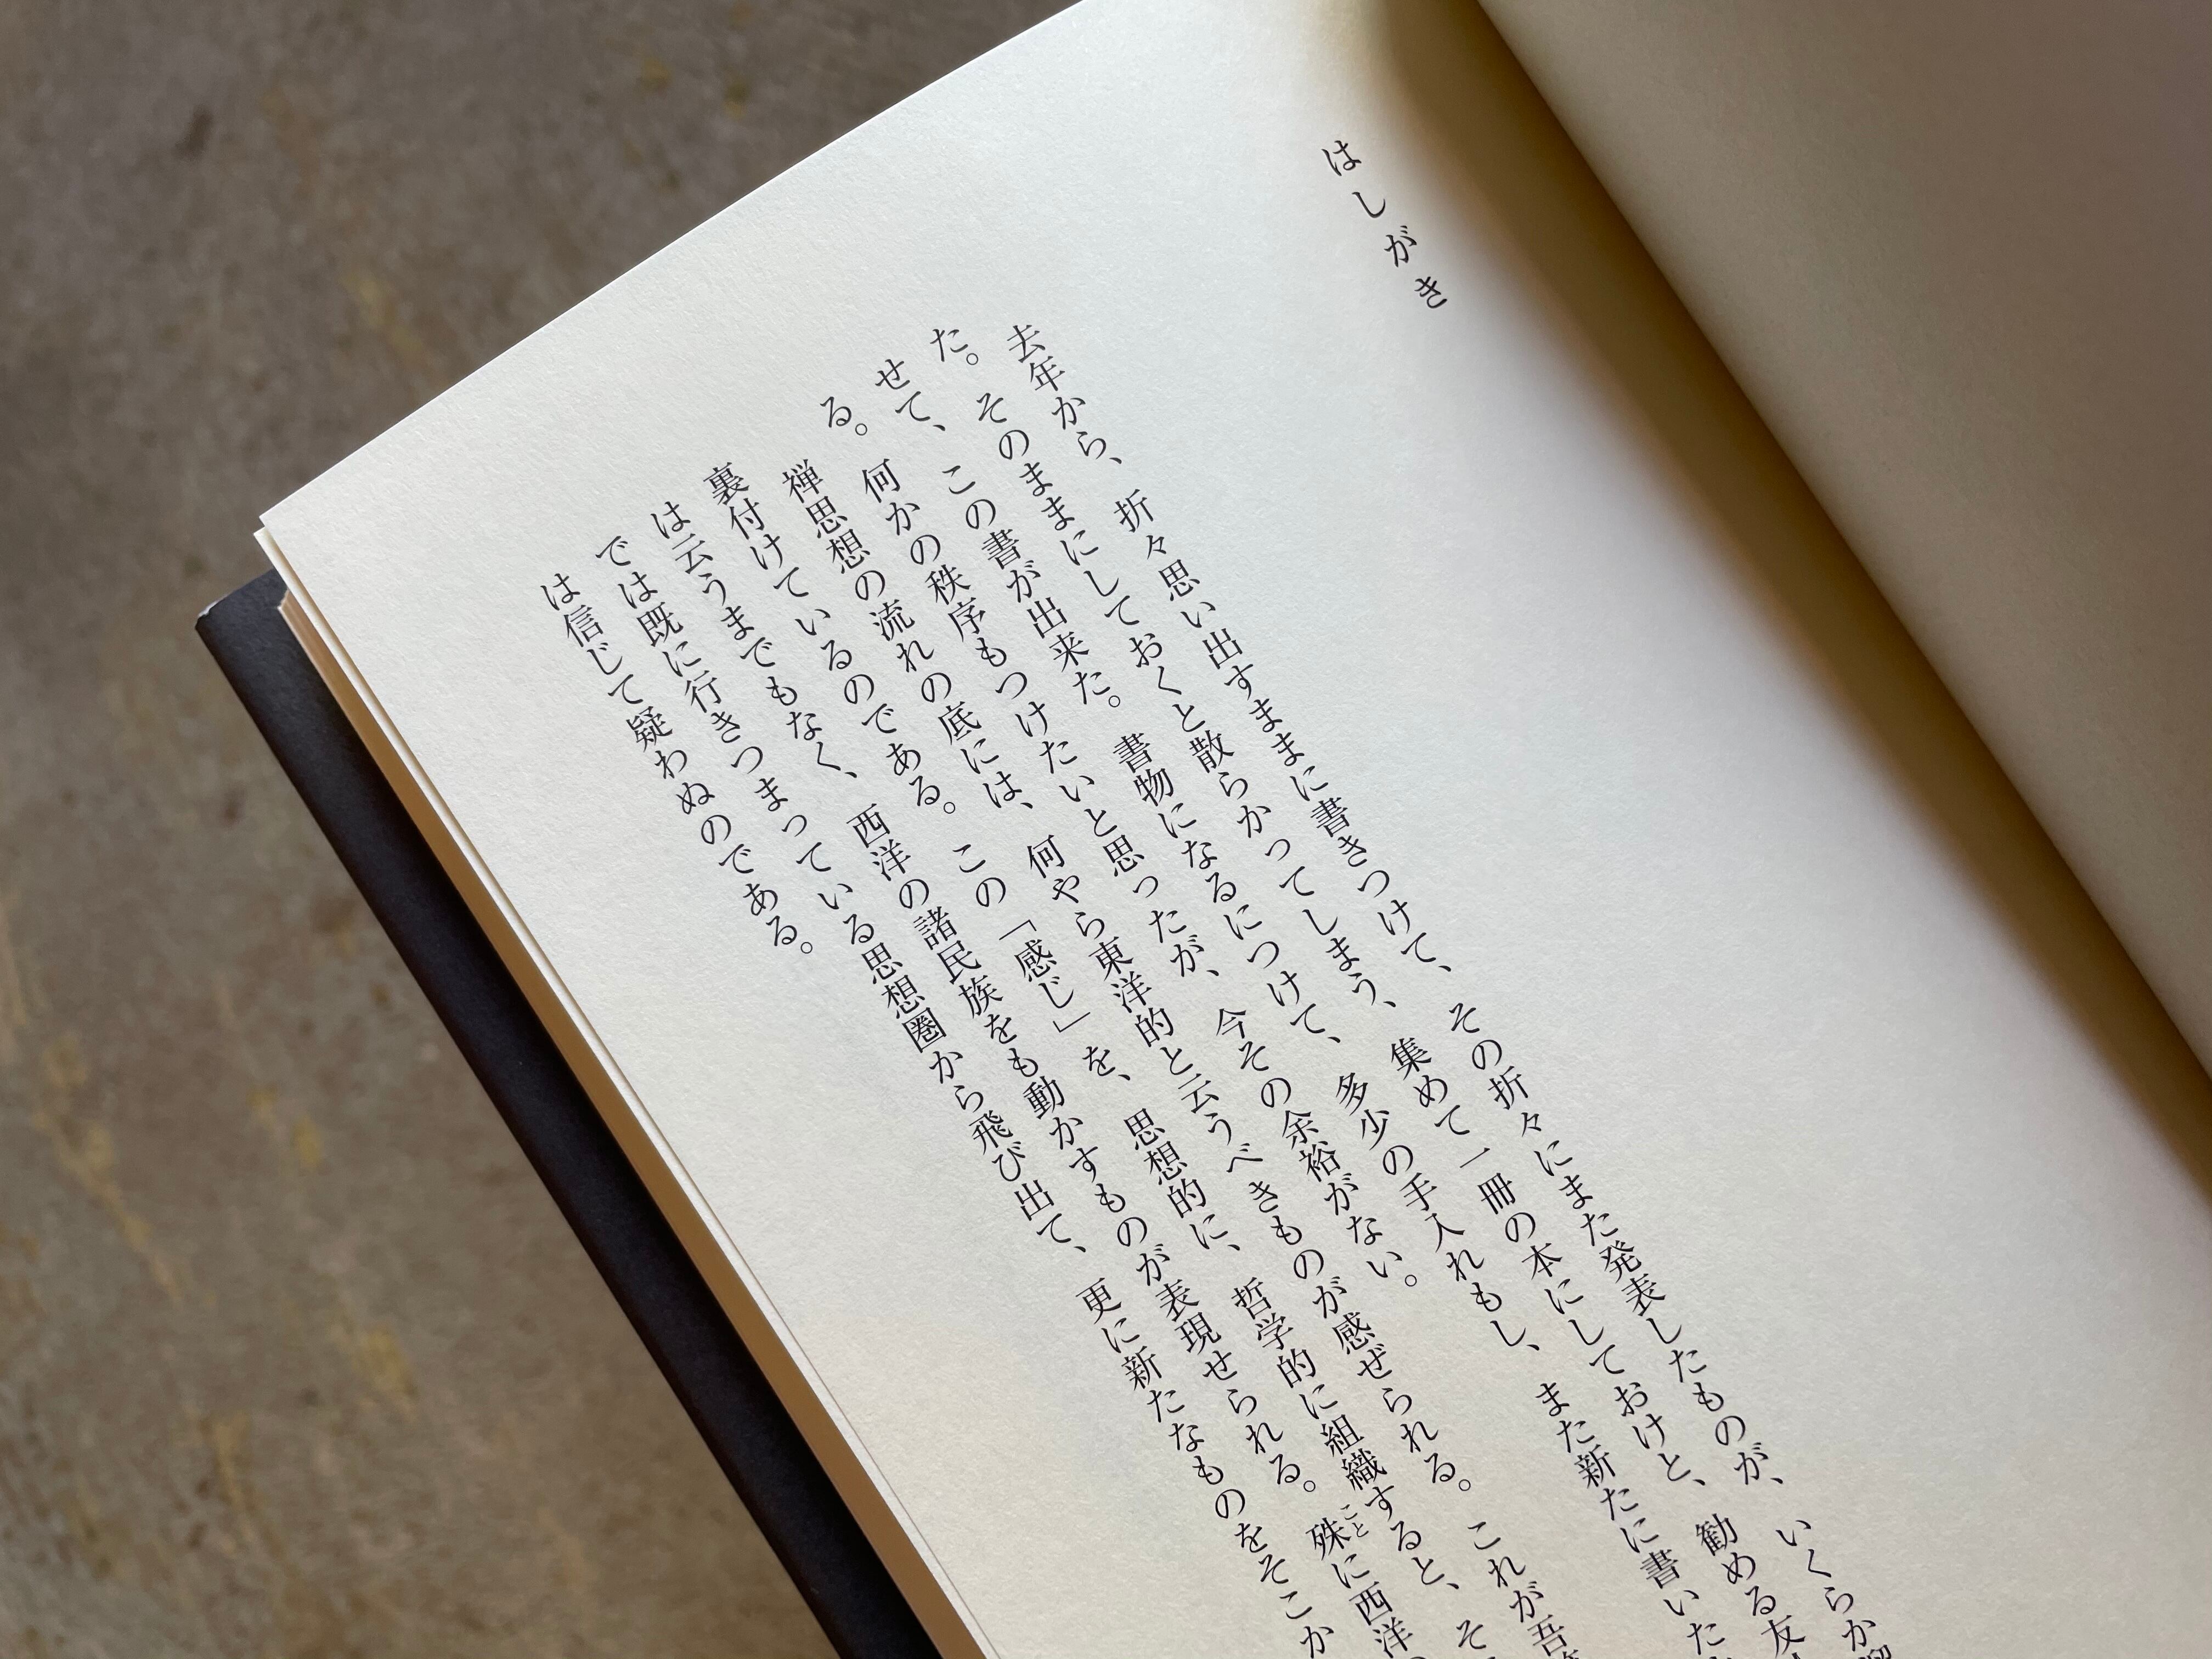 はしがき
去年から、折々思い出すままに書きつけて、その折々にまた発表したものが、いくらか
た。そのままにしておくと散らかってしまう、集めて一冊の本にしておけと、勧める友
せて、この書が出来た。書物になるにつけて、多少の手入れもし、また新たに書いた
る。何かの秩序もつけたいと思ったが、今その余裕がない。
禅思想の流れの底には、何やら東洋的と云うべきものが感ぜられる。これが吾
裏付けているのである。この「感じ」を、思想的に、哲学的に組織すると、そ
は云うまでもなく、西洋の諸民族をも動かすものが表現せられる。殊に西洋
では既に行きつまっている思想圏から飛び出て、更に新たなものをそこか
は信じて疑わぬのである。